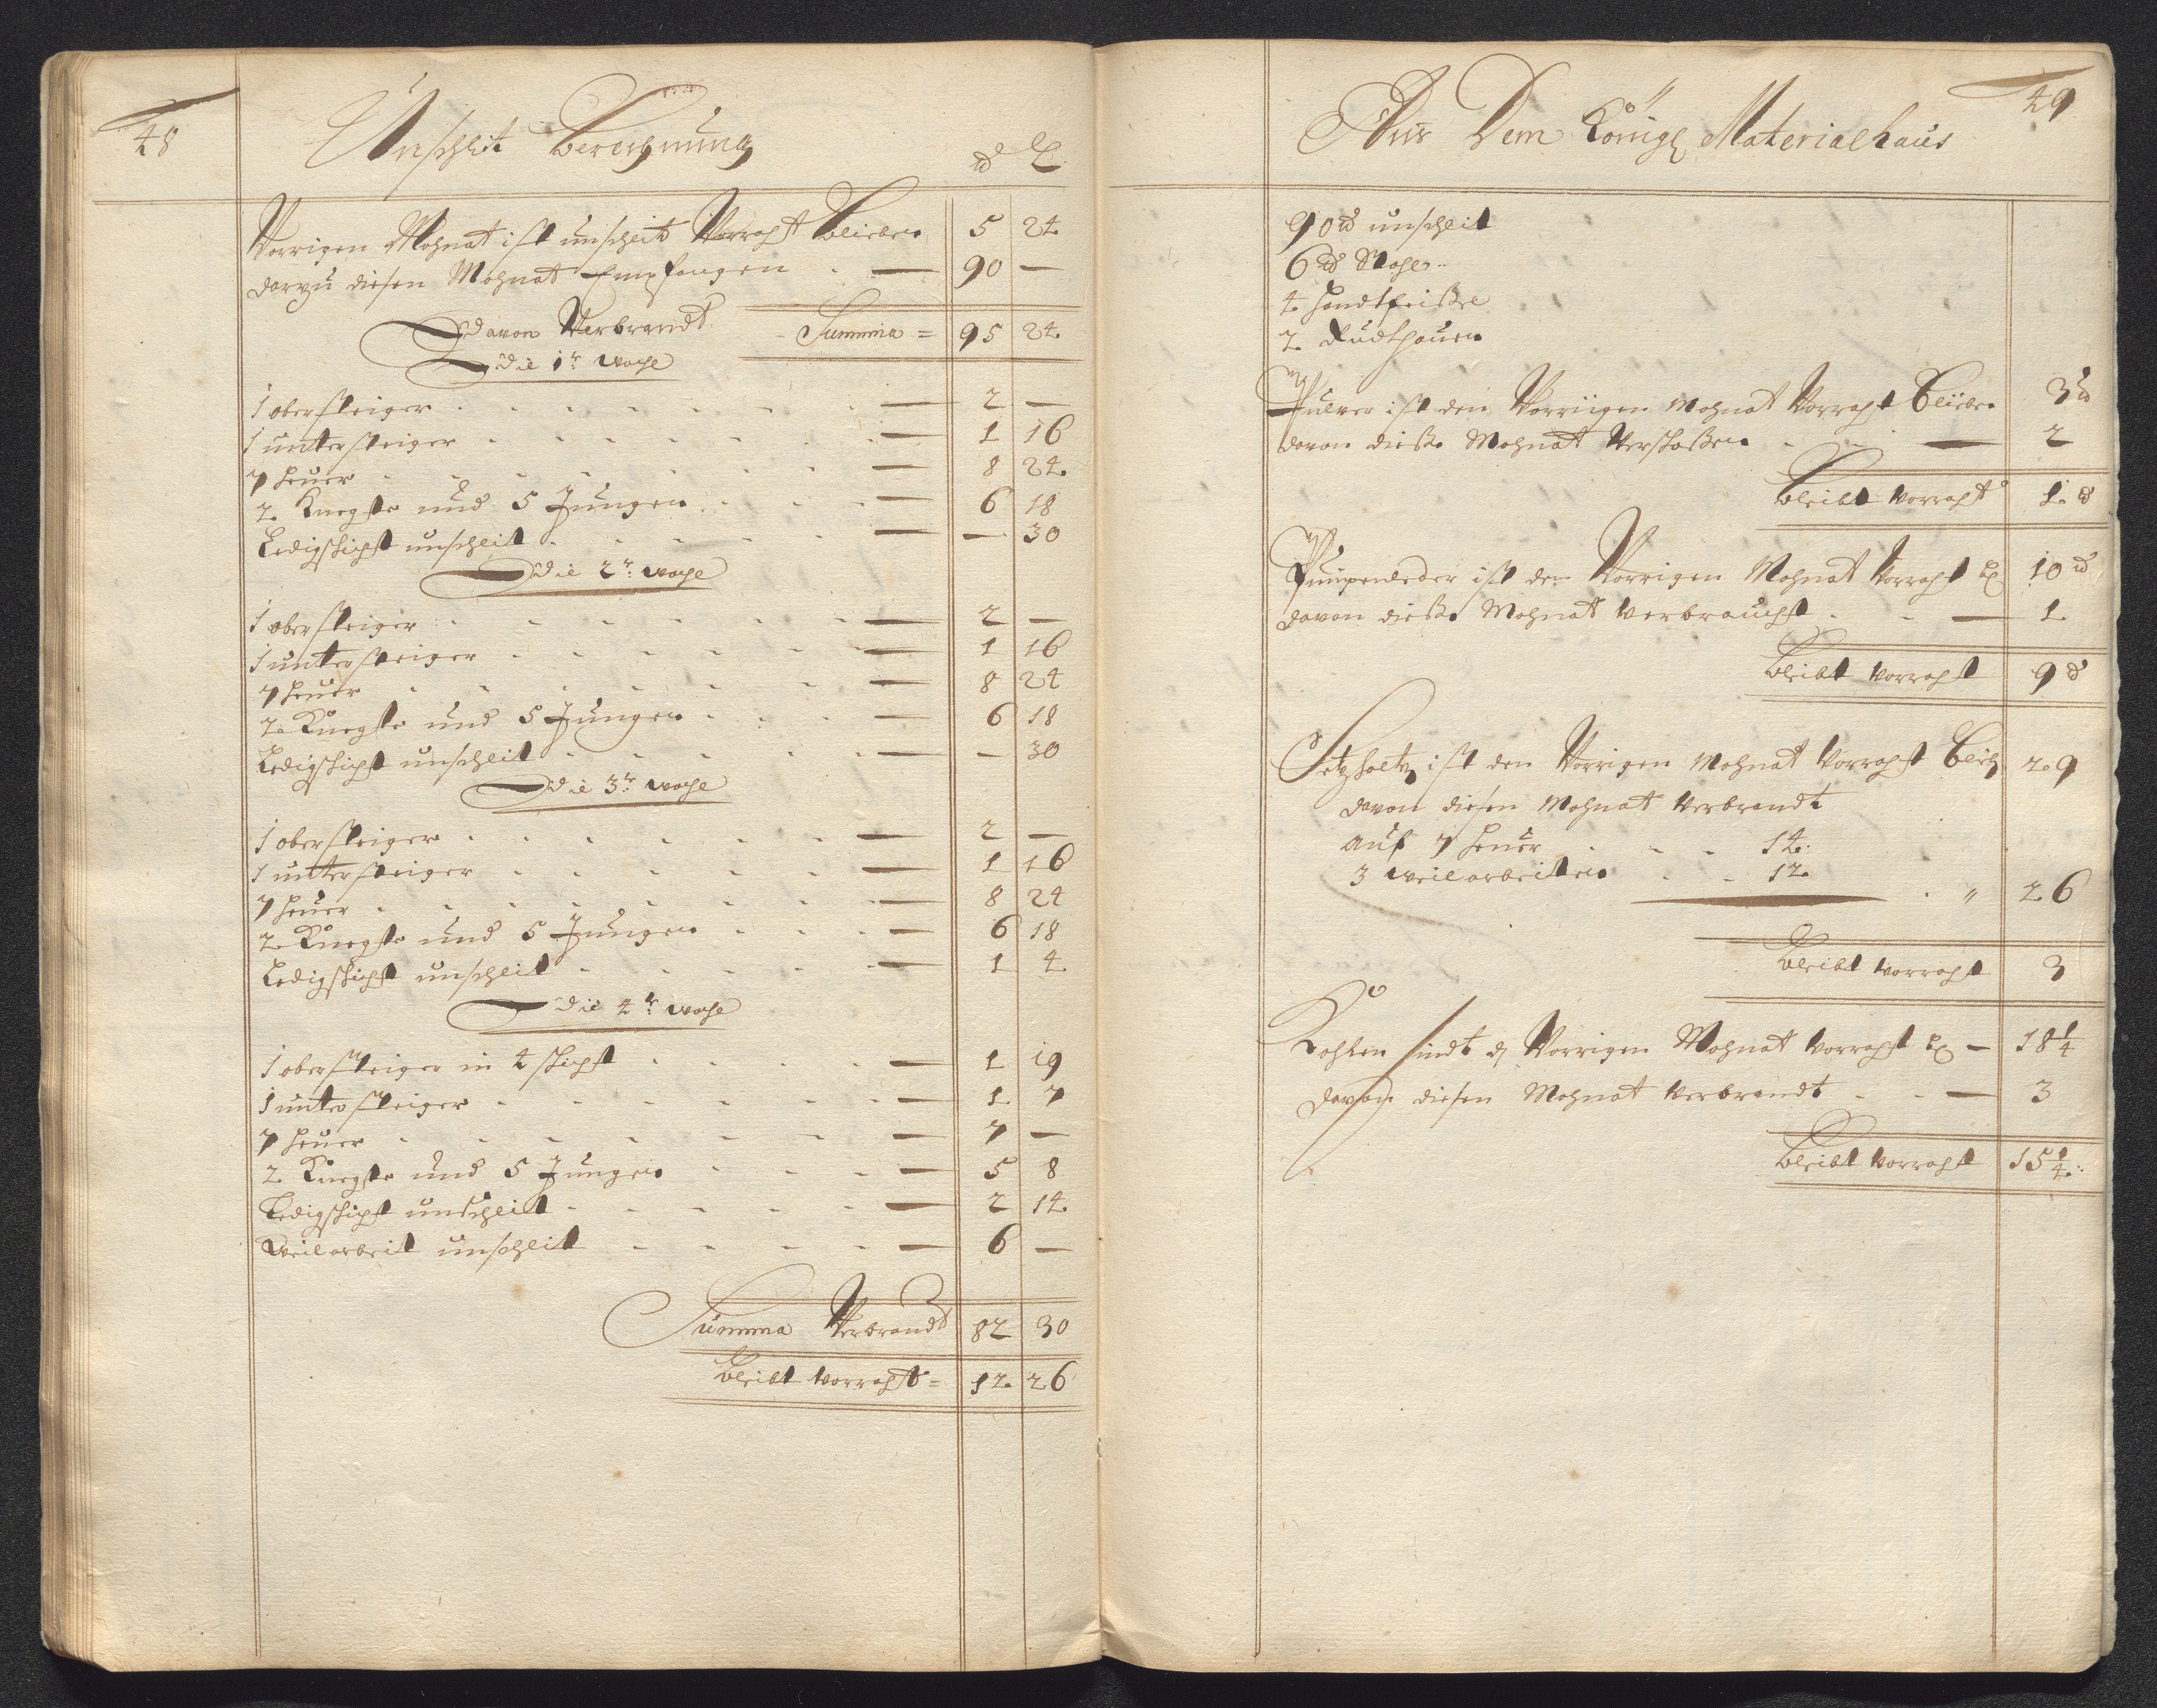 48
Unschlit Berechnung ℔ L
Vorrigen Mohnat ist unschleit Vorraht Blieben 5 24
darzu diesen Mohnat Empfangen . — 90 —
davon Verbrandt Summa = 95 24
die 1te woche
1 obersteiger — 2 —
1 untersteiger — 1 16
7 heuer — 8 24
2 Knegste und 5 Jungen — 6 18
Ledigschicht unschleit — — 30
die 2te woche
1 obersteiger — 2 —
1 untersteiger — 1 16
7 heuer — 8 24
2 Knegste und 5 Jungen — 6 18
Ledigschicht unschleit — — 30
die 3te woche
1 obersteiger — 2 —
1 untersteiger — 1 16
7 heuer — 8 24
2 Knegste und 5 Jungen — 6 18
Ledigschicht unschleit — 1 4
die 4te woche
1 obersteiger in 4 schicht — 1 19
1 untersteiger — 1 7
7 heuer — 7 —
2 Knegste und 5 Jungen — 5 8
Ledigschicht unschleit — 2 14
Weilarbeit unschleit — 6 —
Summa Verbrandt 82 30
bleibt vorraht = 12 26
49
Aus Dem Königl Materialhaus
90 ℔ unschleit
6 ℔
4
2
Pulver ist den Vorriigen Mohnat Vorraht Blieben 3 ℔
davon dießen Mohnat verschoßen — 2
bleibt vorraht 1 ℔
Pumpenleder ist den Vorrigen Mohnat Vorraht bl 10 ℔
davon dießen Mohnat verbraucht — 1
bleibt vorraht 9 ℔
Setzholtz ist den Vorrigen Mohnat Vorraht blieb 29
davon diesen Mohnat verbrandt
auf 7 heuer 14
3 weilarbeiten 12
" 26
bleibt vorraht 3
Kohlen sindt d Vorrigen Mohnat vorraht bl — 18 1/4
davon diesen Mohnat verbrandt — 3
bleibt vorraht 15 1/4